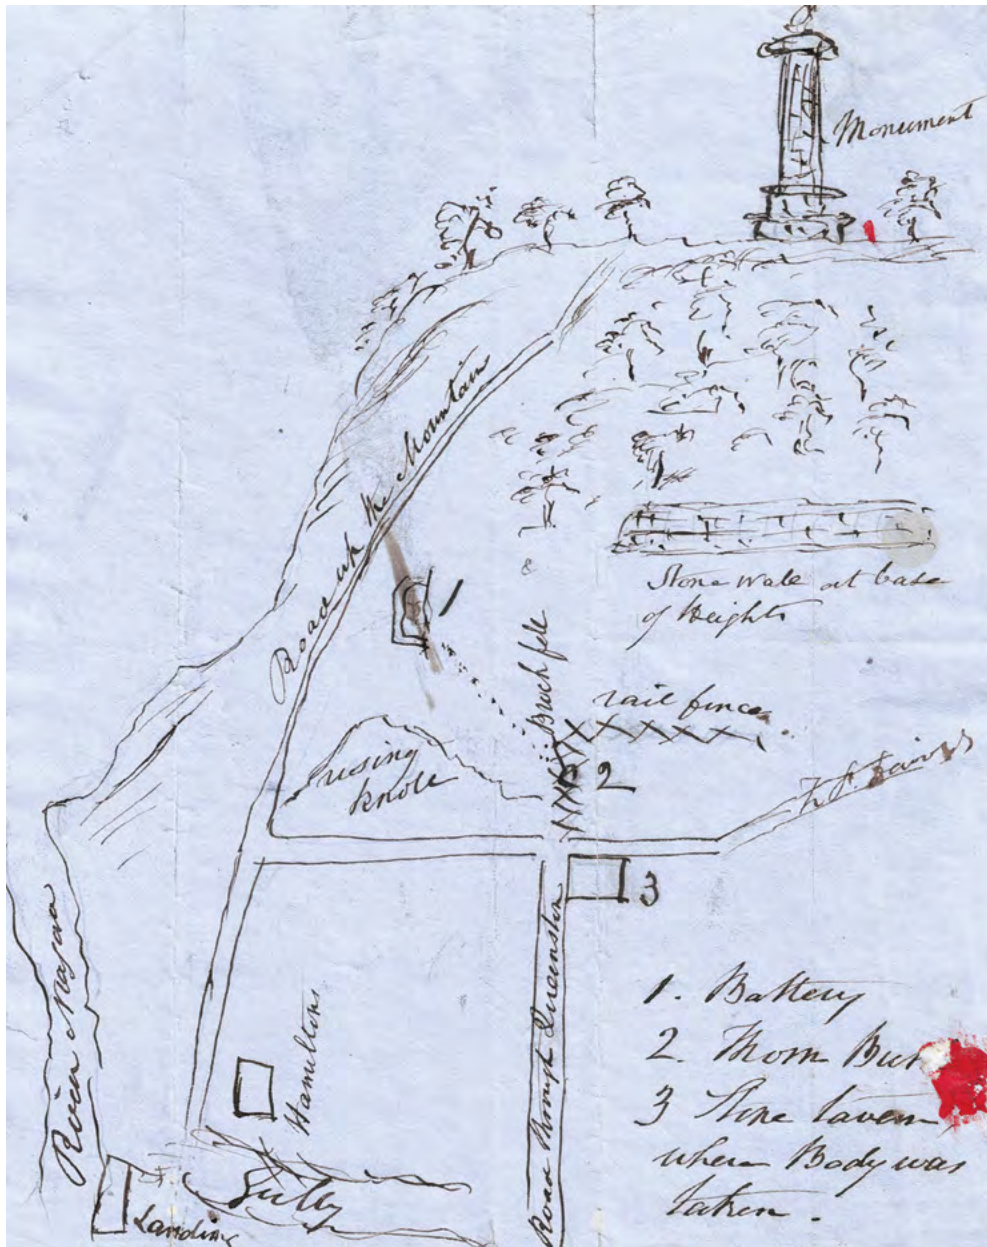 Monument
Road up the Mountain
1
Stone wale at base
of Heights
Brock fele
rail fence
rising
knole
2
3
River Niagara
Hamiltons
Road through Queenston
Gully
Landing
1. Battery
2. Thorn
3 Stone tavern
where Body was
taken.